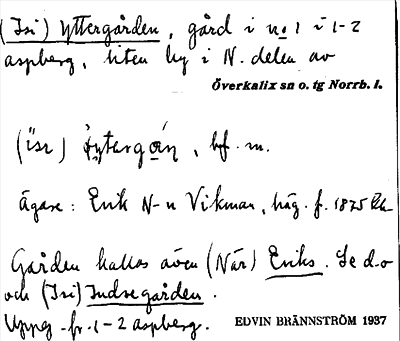 (Isi) Yttergården, gård i n:o 1 i 1-2
aspberg, liten by i N. delen av
Överkalix sn o. tg Norrb. l.
(isı) ytərgɑ́ṇ, bf. m.
Ägare: Erik N-n Vikman, häg. f. 1875
Gården kallas även (När) Eriks. Se d:o
och (Isi) Indregården.
Uppg. fr. 1-2 aspberg.
EDVIN BRÄNNSTRÖM 1937